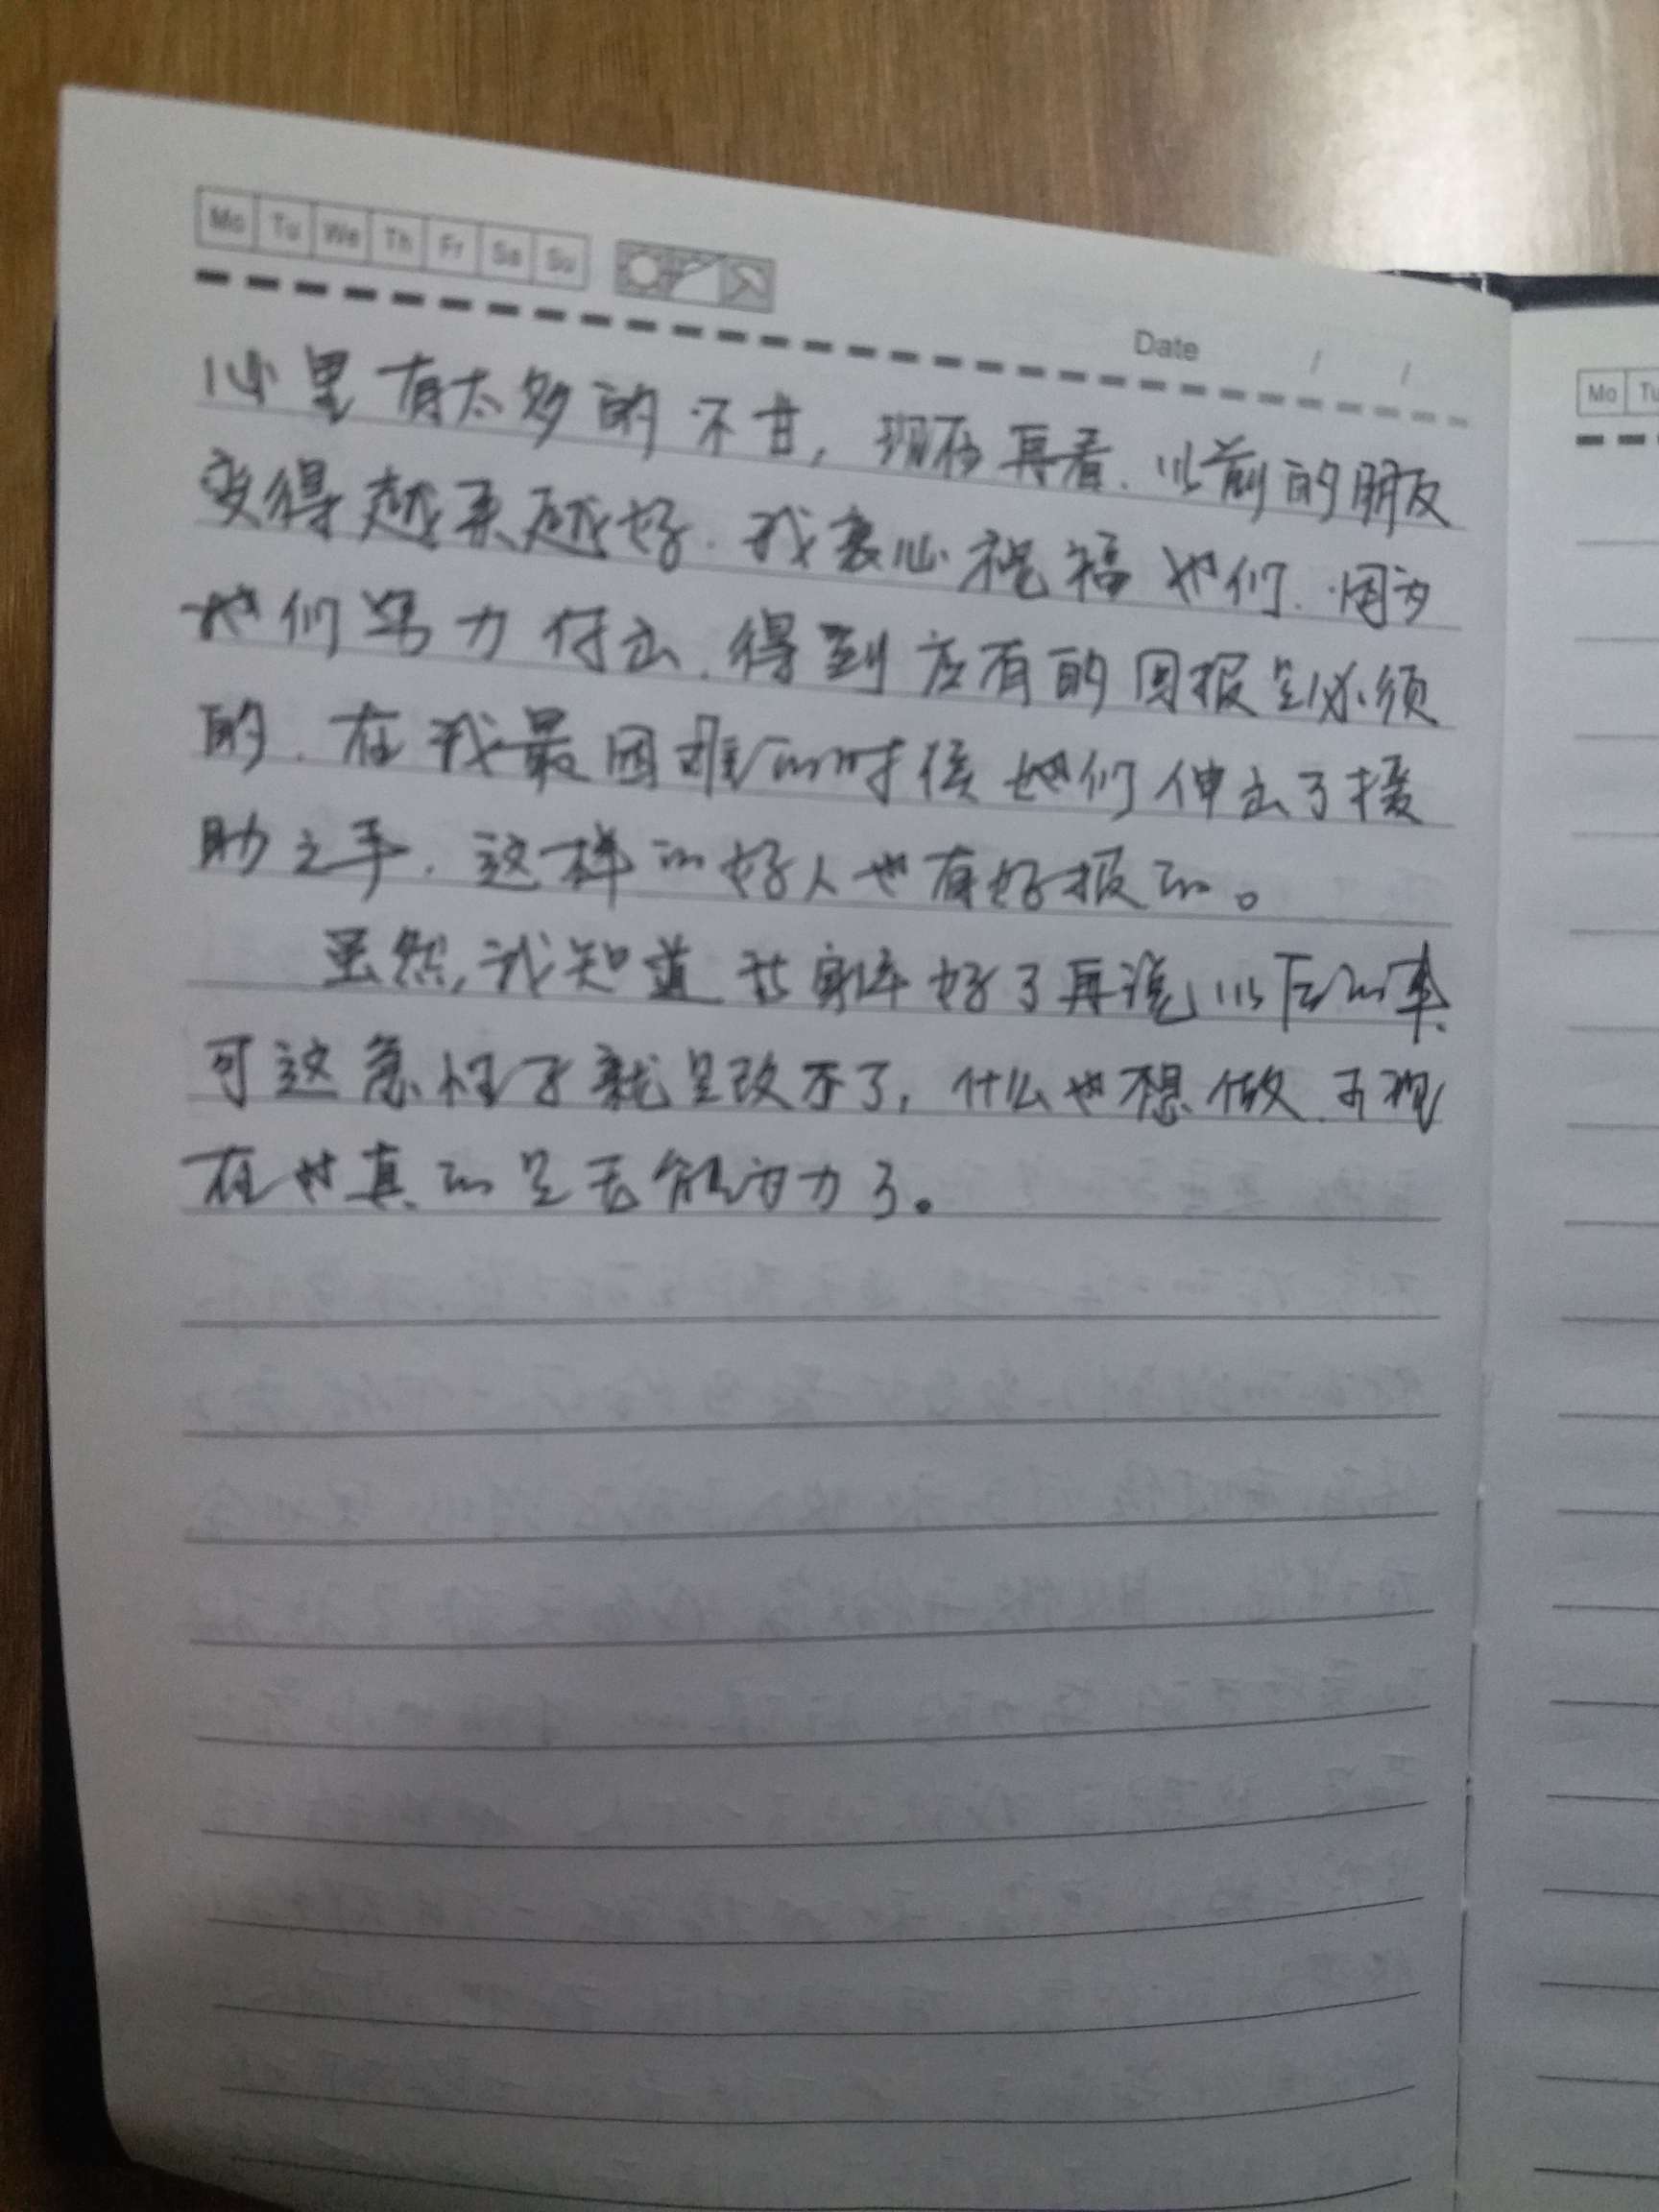 Mo Tu We Th Fr Sa Su
Date / /
心里有太多的不甘，现在再看．以前的朋友
变得越来越好．我衷心祝福他们．因为
他们努力付出．得到应有的回报是必须
的．在我最困难的时候他们伸出了援
助之手．这样的好人也有好报的。
虽然，我知道 身体好了再说以后的事．
可这急性子就是改不了，什么也想做．可现
在 真的是无能为力了。
Mo Tu